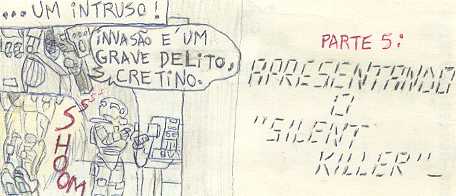 ...UM INTRUSO!
INVASÃO E' UM
GRAVE DELITO,
CRETINO.
SHOOM
PARTE 5:
APRESENTANDO
O
"SILENT
KILLER"_